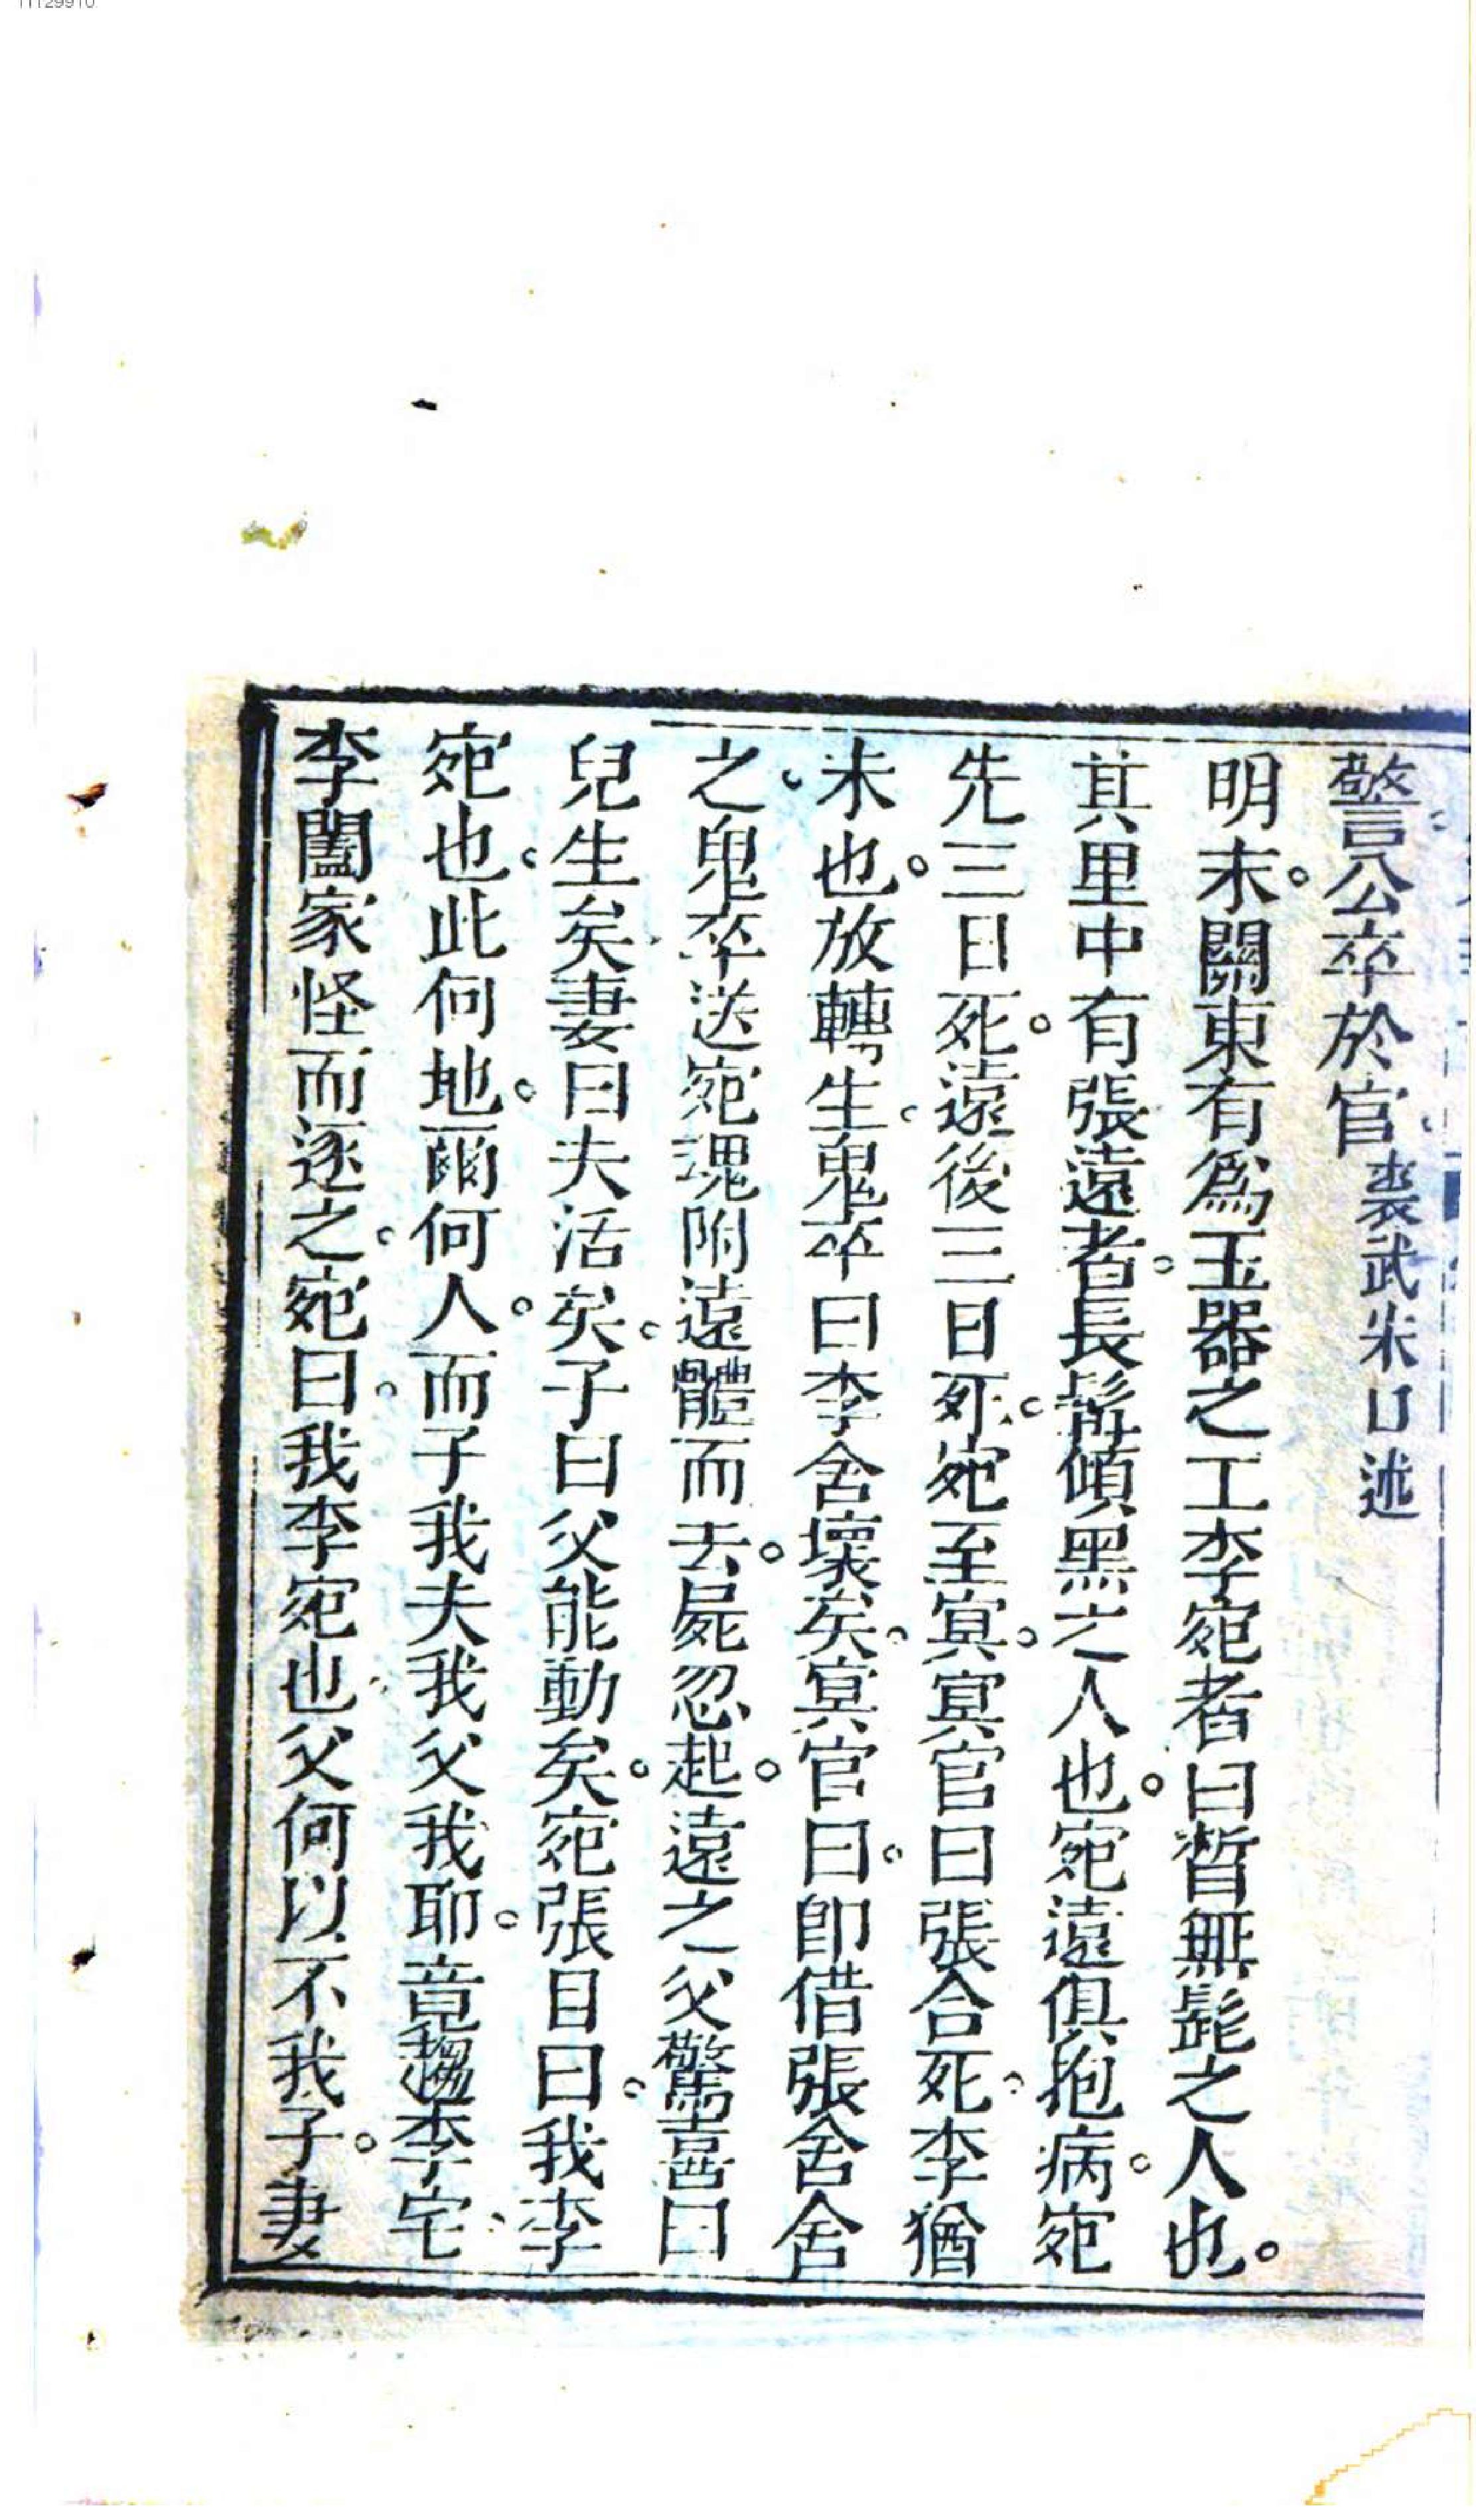 警公卒於官裘武朱口述
明末。關東有為玉器之工李宛者曰晳無髭之人也。
其里中有張遠者。長髯傾黑之人也。宛遠俱抱病。宛
先三日死。遠後三日死。宛至冥。冥官曰張合死。李猶
未也。放轉生。鬼卒曰李舍壞矣。冥官曰。即借張舍舍
之。鬼卒送宛魂附遠體而去。屍忽起。遠之父驚喜曰
兒生矣。妻曰夫活矣。子曰父能動矣。宛張目曰。我李
宛也。此何地。爾何人。而子我夫我父我耶。竟趨李宅。
李闔家怪而逐之。宛曰。我李宛也。父何以不我子。妻